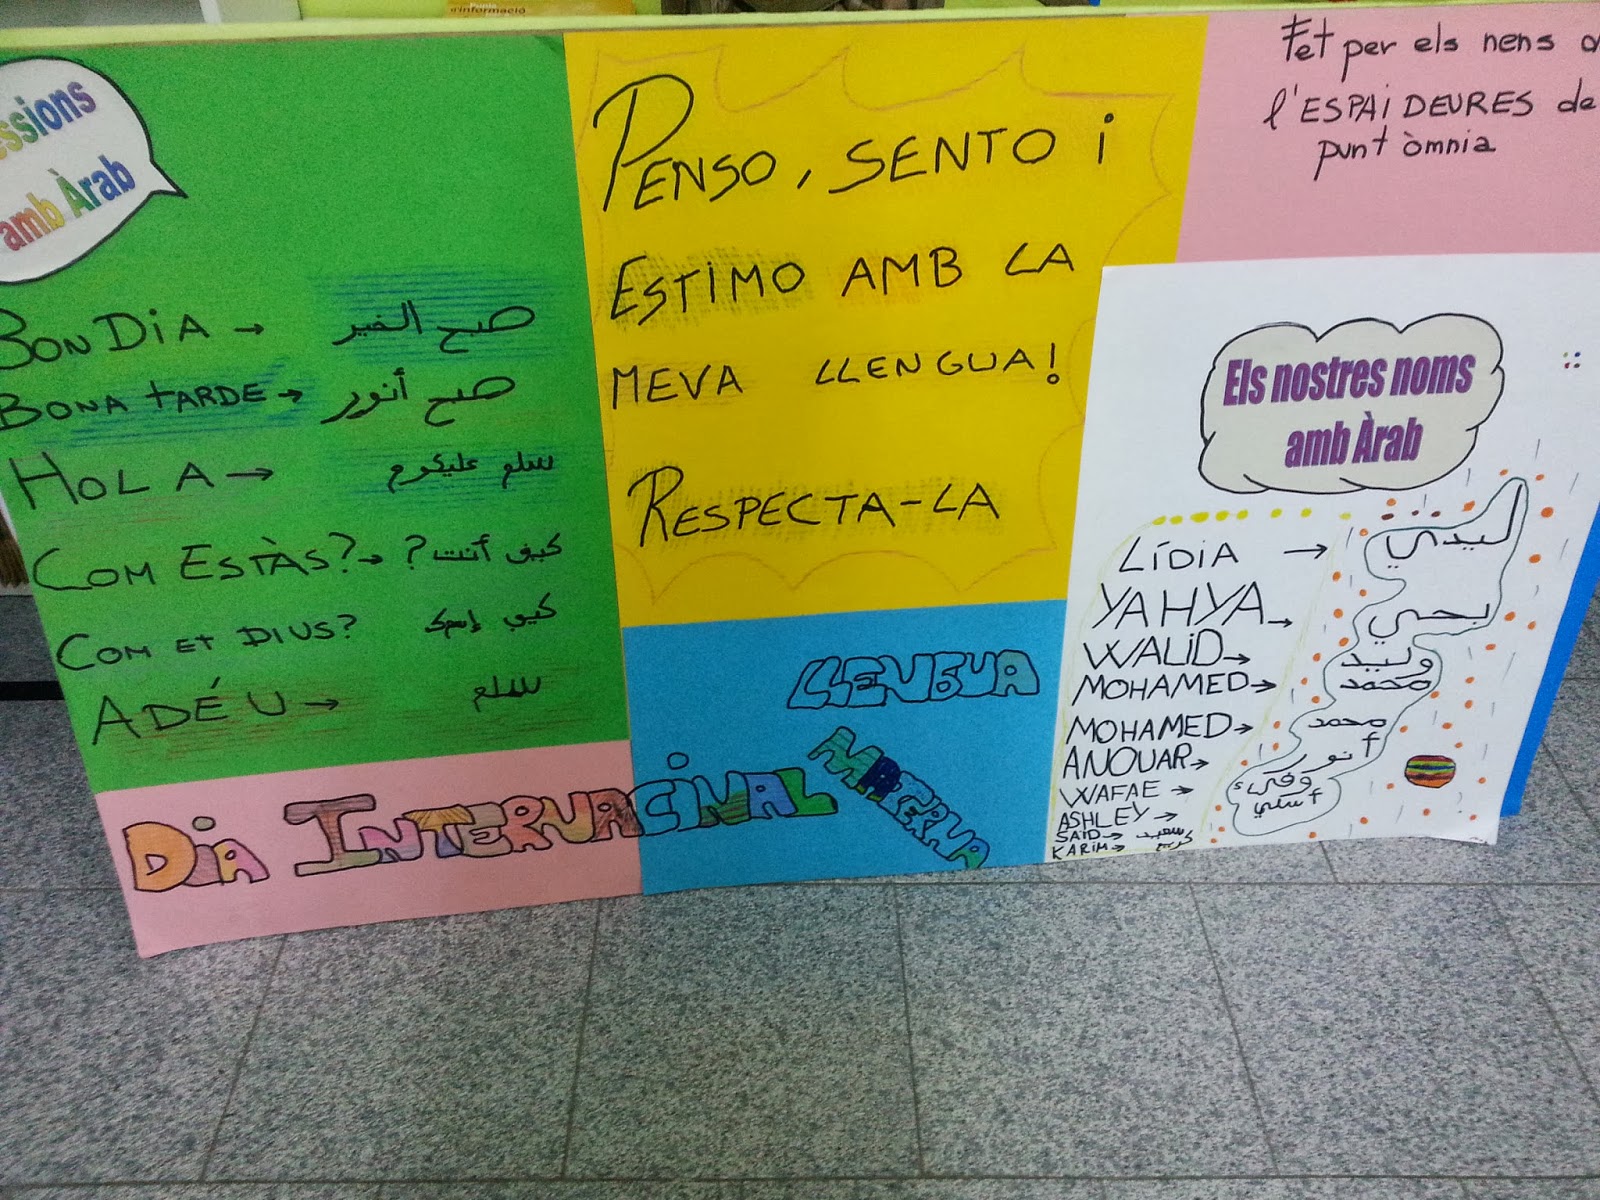 d'informació
essions
amb Àrab
BON DIA → صبح الخير
BONA TARDE → صبح أنور
HOLA → سلم عليكوم
COM ESTÀS? → كيف أنت ?
COM ET DIUS? كيف إسمك
ADÉU → سلم
PENSO, SENTO i
ESTIMO AMB LA
MEVA LLENGUA!
RESPECTA-LA
DIA INTERNACINAL
LLENGUA
MATERNA
Fet per els nens
l'ESPAI DEURES de
punt òmnia
Els nostres noms
amb Àrab
LÍDIA → ليدي
YAHYA → يحي
WALID → وليد
MOHAMED → محمد
MOHAMED → محمد
ANOUAR → أنور
WAFAE →
ASHLEY →
SAID → سعيد
KARIM → كريم